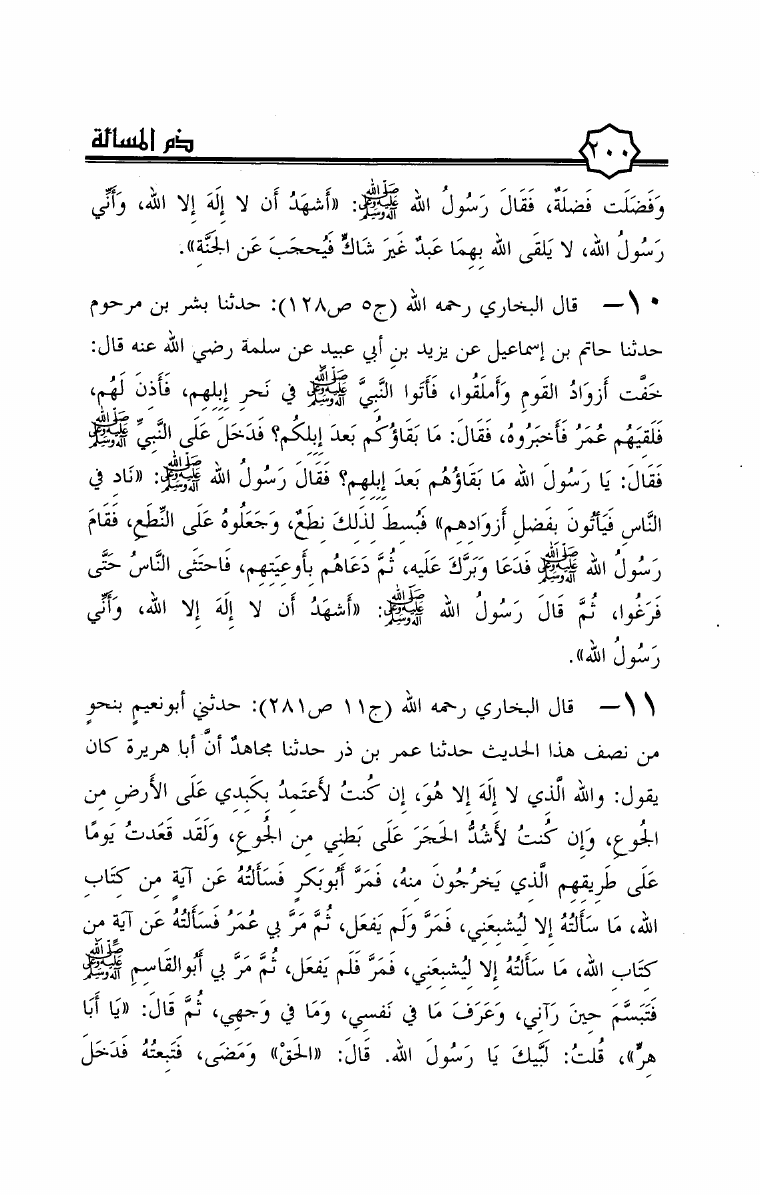 ذم المسألة
٢٠٠
وَفَضَلَت فَضلَةٌ، فَقَالَ رَسُولُ الله ﷺ: «أَشهَدُ أَن لا إِلَهَ إِلا الله، وَأَنِّي
رَسُولُ الله، لا يَلقَى الله بِهِمَا عَبدٌ غَيرَ شَاكٍّ فَيُحجَبَ عَن الجَنَّةِ».
١٠- قال البخاري رحمه الله (ج٥ ص١٢٨): حدثنا بشر بن مرحوم
حدثنا حاتم بن إسماعيل عن يزيد بن أبي عبيد عن سلمة رضي الله عنه قال:
خَفَّت أَزوَادُ القَومِ وَأَملَقُوا، فَأَتَوا النَّبِيَّ ﷺ في نَحرِ إِبِلِهِم، فَأَذِنَ لَهُم،
فَلَقِيَهُم عُمَرُ فَأَخبَرُوهُ، فَقَالَ: مَا بَقَاؤُكُم بَعدَ إِبِلِكُم؟ فَدَخَلَ عَلَى النَّبِيِّ ﷺ
فَقَالَ: يَا رَسُولَ الله مَا بَقَاؤُهُم بَعدَ إِبِلِهِم؟ فَقَالَ رَسُولُ الله ﷺ: «نَادِ في
النَّاسِ فَيَأتُونَ بِفَضلِ أَزوَادِهِم» فَبُسِطَ لِذَلِكَ نِطَعٌ، وَجَعَلُوهُ عَلَى النِّطَعِ، فَقَامَ
رَسُولُ الله ﷺ فَدَعَا وَبَرَّكَ عَلَيه، ثُمَّ دَعَاهُم بِأَوعِيَتِهِم، فَاحتَثَى النَّاسُ حَتَّى
فَرَغُوا، ثُمَّ قَالَ رَسُولُ الله ﷺ: «أَشهَدُ أَن لا إِلَهَ إِلا الله، وَأَنِّي
رَسُولُ الله».
١١- قال البخاري رحمه الله (ج١١ ص٢٨١): حدثني أبونعيم بنحوٍ
من نصف هذا الحديث حدثنا عمر بن ذر حدثنا مجاهدٌ أنَّ أبا هريرة كان
يقول: والله الَّذي لا إِلَهَ إِلا هُوَ، إِن كُنتُ لأَعتَمِدُ بِكَبِدي عَلَى الأَرضِ مِن
الجُوعِ، وَإِن كُنتُ لأَشُدُّ الحَجَرَ عَلَى بَطني مِن الجُوعِ، وَلَقَد قَعَدتُ يَومًا
عَلَى طَرِيقِهِم الَّذي يَخرُجُونَ مِنهُ، فَمَرَّ أَبُوبَكرٍ فَسَأَلتُهُ عَن آيَةٍ مِن كِتَابِ
الله، مَا سَأَلتُهُ إِلا لِيُشبِعَني، فَمَرَّ وَلَم يَفعَل، ثُمَّ مَرَّ بي عُمَرُ فَسَأَلتُهُ عَن آيَةٍ مِن
كِتَابِ الله، مَا سَأَلتُهُ إِلا لِيُشبِعَني، فَمَرَّ فَلَم يَفعَل، ثُمَّ مَرَّ بي أَبُوالقَاسِمِ ﷺ
فَتَبَسَّمَ حِينَ رَآني، وَعَرَفَ مَا في نَفسي، وَمَا في وَجهي، ثُمَّ قَالَ: «يَا أَبَا
هِرٍّ»، قُلتُ: لَبَّيكَ يَا رَسُولَ الله. قَالَ: «الحَقْ» وَمَضَى، فَتَبِعتُهُ فَدَخَلَ